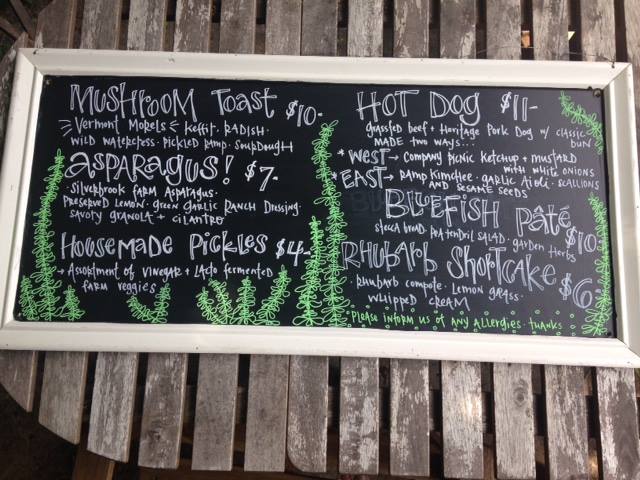 MUSHROOM TOAST $10-
Vermont Morels Keffir. RADISH.
WILD WATERCRESS. PICKLED RAMP. SOURDOUGH
ASPARAGUS! $7-
Silverbrook FARM ASPARAGUS.
PRESERVED LEMON. GREEN GARLIC RANCH DRESSING.
SAVOTY GRANOLA + CILANTRO
HOUSEMADE PICKLES $4-
Assortment of Vinegar + Lacto fermented
FARM veggies
HOT DOG $11-
grassfed beef + Heritage Pork Dog w/ classic bun
MADE two ways...
*WEST → COMPANY PICNIC KETCHUP + MUSTARD
WITH WHITE ONIONS
*EAST → RAMP KIMCHEE. GARLIC AIOLI. SCALLIONS
AND SESAME SEEDS
BLUEFISH PÂTÉ
SALAD. GARDEN HERBS $10-
RHUBARB SHORTCAKE $6
Rhubarb compote. Lemon grass.
WHIPPED CREAM
PLEASE INFORM US OF ANY ALLERGIES. THANKS